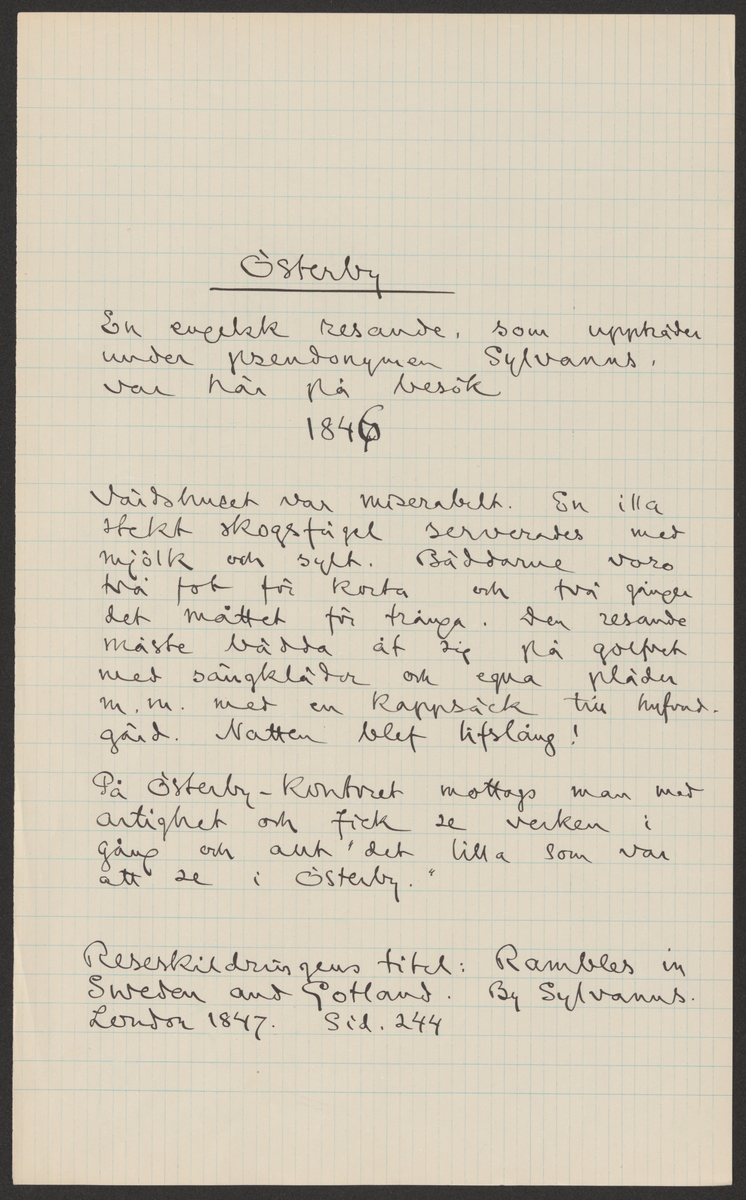 Österby
En engelsk resande, som uppträder
under pseudonymen Sylvanus,
var här på besök
1846
Värdshuset var miserabelt. En illa
stekt skogsfågel serverades med
mjölk och sylt. Bäddarne voro
två fot för korta och två gånger
det måttet för trånga. Den resande
måste bädda åt sig på golfvet
med sängkläder och egna pläder
m.m. med en kappsäck till hufvud-
gärd. Natten blef lifslång!
På Österby-kontoret mottogs man med
artighet och fick se verken i
gång och allt "det lilla som var
att se i Österby."
Reseskildringens titel: Rambles in
Sweden and Gotland. By Sylvanus.
London 1847. Sid. 244